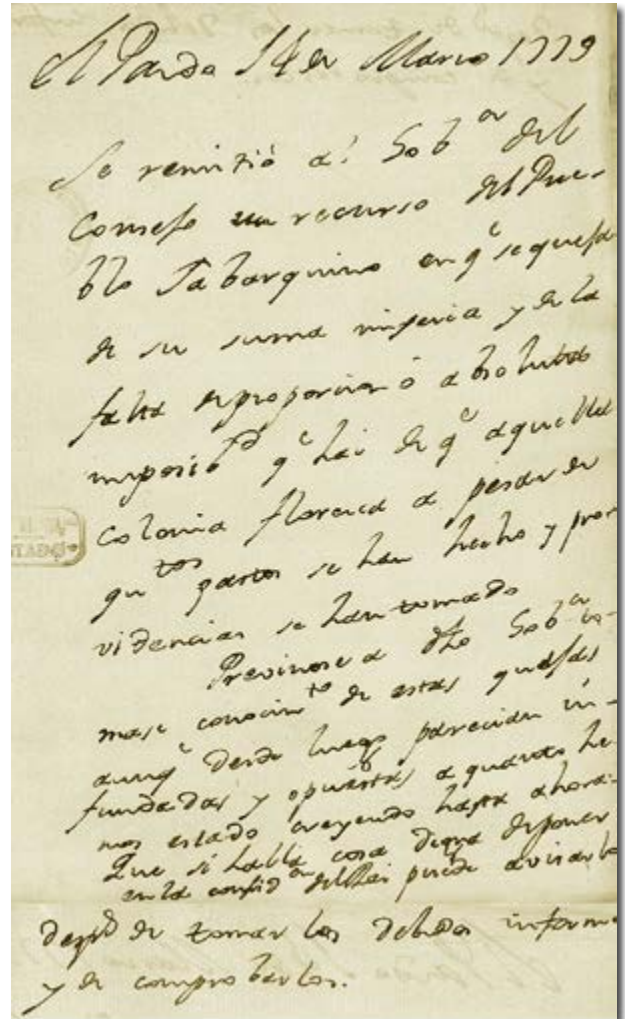 El Pardo 14 de Marzo 1779
Se remitió al Sob.or del
Consejo un recurso del Pue-
blo Tabarquino en q.e se quejaba
de su suma miseria y de la
falta de proporcion ó absoluta
imposib.d q.e hai de q.e aquella
Colonia florezca a pesar de
qu.tos gastos se han hecho y pro-
videncias se han tomado
Previnose a dho Sob.or to-
mase conocim.to de estas quejas
aunq.e desde luego parecian in-
fundadas y opuestas a quanto he-
mos estado creyendo hasta ahora.
Que si halla cosa digna de poner
en la consid.on del Rei puede avisarlo
desp.s de tomar los debidos informes
y de comprobarlos.